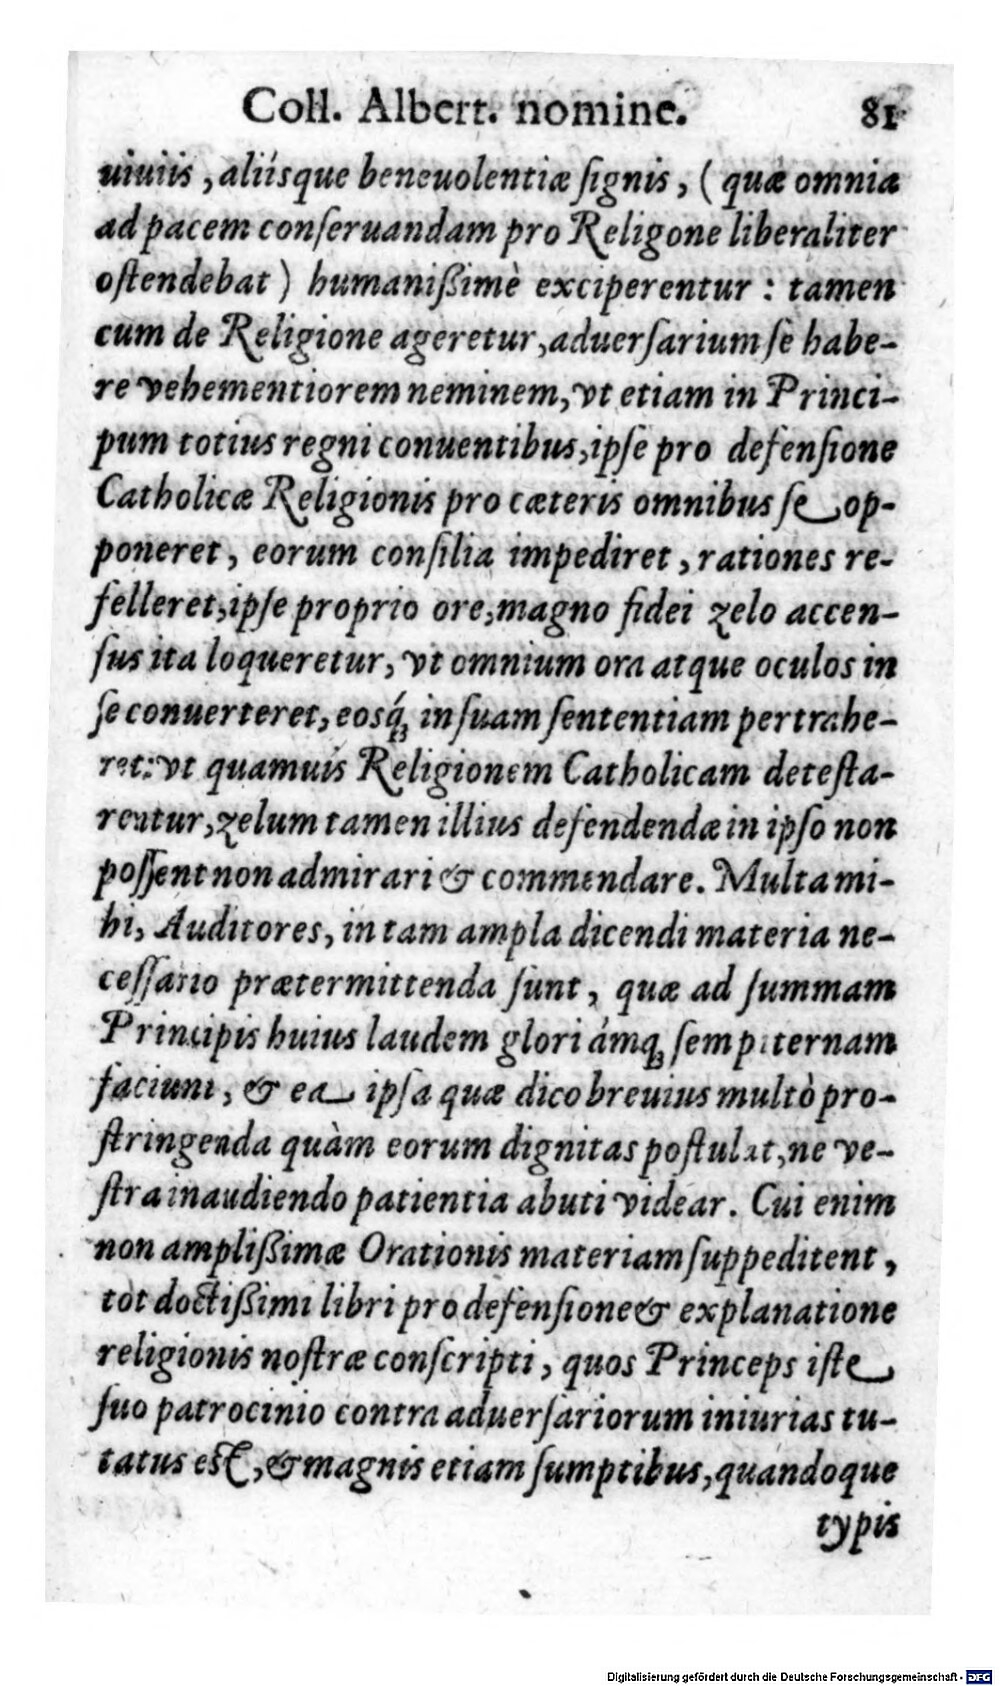 Coll. Albert. nomine. 81
uiuiis, aliísque beneuolentiæ ſignis, ( quæ omnia
ad pacem conſeruandam pro Religone liberaliter
oſtendebat ) humanißimè exciperentur : tamen
cum de Religione ageretur, aduerſarium ſe habe-
re vehementiorem neminem, vt etiam in Princi-
pum totius regni conuentibus, ipſe pro defenſione
Catholicæ Religionis pro cæteris omnibus ſe op-
poneret, eorum conſilia impediret, rationes re-
felleret, ipſe proprio ore, magno fidei zelo accen-
ſus ita loqueretur, vt omnium ora atque oculos in
ſe conuerteret, eosq́ꝫ in ſuam ſententiam pertrahe-
ret: vt quamuis Religionem Catholicam deteſta-
rentur, zelum tamen illius defendendæ in ipſo non
poſſent non admirari & commendare. Multa mi-
hi, Auditores, in tam ampla dicendi materia ne-
ceſſario prætermittenda ſunt, quæ ad ſummam
Principis huius laudem gloriámqꝫ ſempiternam
faciunt, & ea ipſa quæ dico breuius multò pro-
ſtringenda quàm eorum dignitas poſtulat, ne ve-
ſtra in audiendo patientia abuti videar. Cui enim
non amplißimæ Orationis materiam ſuppeditent,
tot doctißimi libri pro defenſione & explanatione
religionis noſtræ conſcripti, quos Princeps iſte
ſuo patrocinio contra aduerſariorum iniurias tu-
tatus eſt, & magnis etiam ſumptibus, quandoque
typis
Digitalisierung gefördert durch die Deutsche Forschungsgemeinschaft - DFG